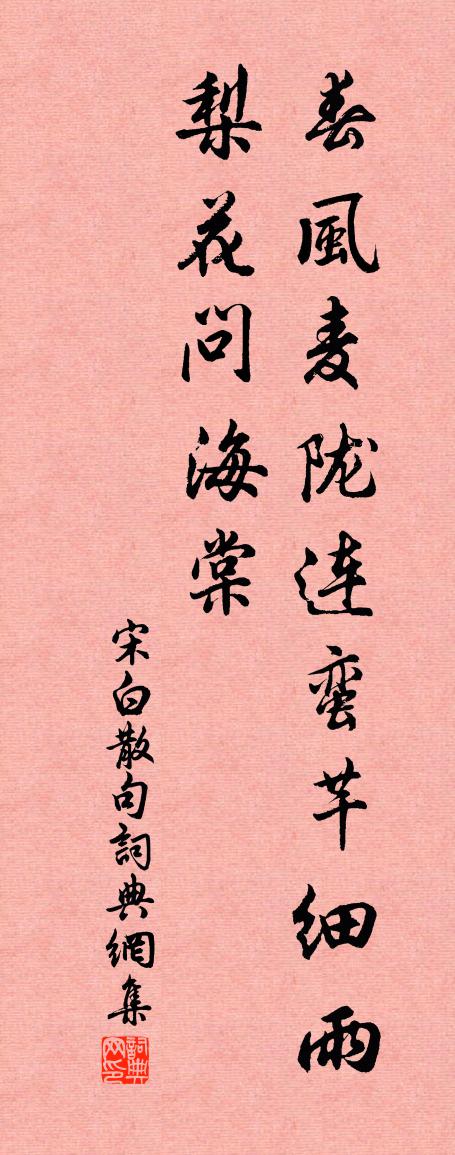 春風麦陇連蛮芊细雨
梨花问海棠
宋白散句詞典網集
詞典网印